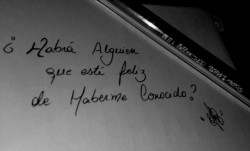 ¿Habrá Alguien
que esté feliz
de Haberme Conocido?